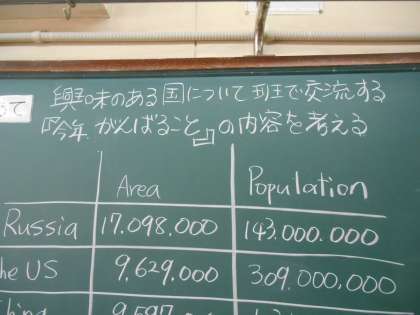 って
興味のある国について班で交流する
『今年、がんばること』の内容を考える
Area Population
Russia 17.098.000 143.000.000
he US 9,629,000 309,000,000